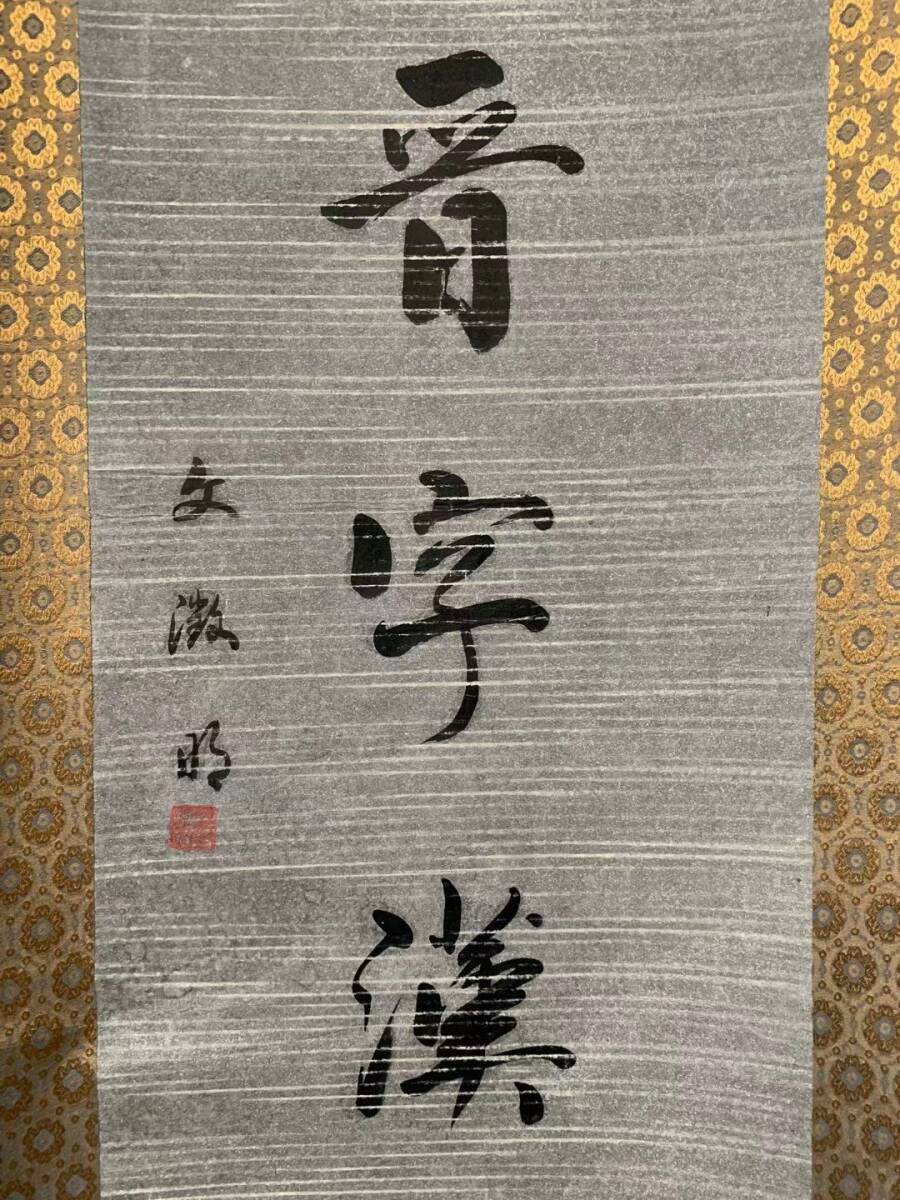 晋字漢
文徵明